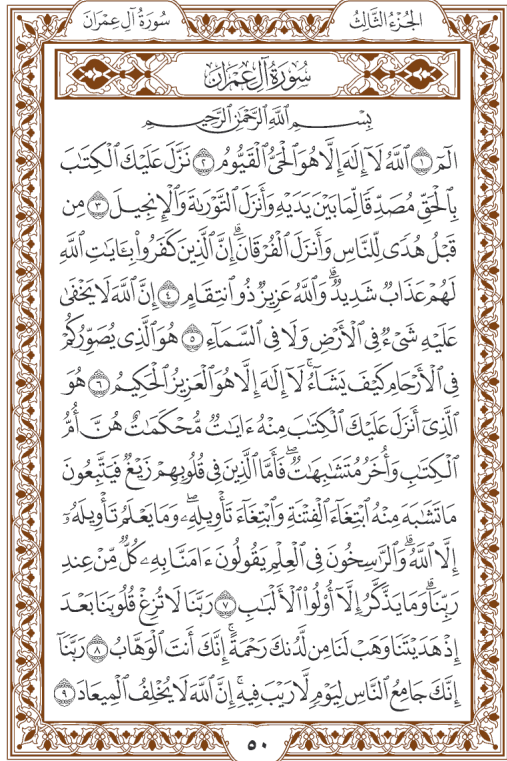 الجُزْءُ الثَّالِثُ
سُورَةُ آلِ عِمْرَانَ
سُورَةُ آلِ عِمْرَانَ
بِسْمِ اللَّهِ الرَّحْمَٰنِ الرَّحِيمِ
الٓمٓ ١ ٱللَّهُ لَآ إِلَٰهَ إِلَّا هُوَ ٱلْحَىُّ ٱلْقَيُّومُ ٢ نَزَّلَ عَلَيْكَ ٱلْكِتَٰبَ
بِٱلْحَقِّ مُصَدِّقًا لِّمَا بَيْنَ يَدَيْهِ وَأَنزَلَ ٱلتَّوْرَىٰةَ وَٱلْإِنجِيلَ ٣ مِن
قَبْلُ هُدًى لِّلنَّاسِ وَأَنزَلَ ٱلْفُرْقَانَۗ إِنَّ ٱلَّذِينَ كَفَرُوا۟ بِـَٔايَٰتِ ٱللَّهِ
لَهُمْ عَذَابٌ شَدِيدٌۗ وَٱللَّهُ عَزِيزٌ ذُو ٱنتِقَامٍ ٤ إِنَّ ٱللَّهَ لَا يَخْفَىٰ
عَلَيْهِ شَىْءٌ فِى ٱلْأَرْضِ وَلَا فِى ٱلسَّمَآءِ ٥ هُوَ ٱلَّذِى يُصَوِّرُكُمْ
فِى ٱلْأَرْحَامِ كَيْفَ يَشَآءُۚ لَآ إِلَٰهَ إِلَّا هُوَ ٱلْعَزِيزُ ٱلْحَكِيمُ ٦ هُوَ
ٱلَّذِىٓ أَنزَلَ عَلَيْكَ ٱلْكِتَٰبَ مِنْهُ ءَايَٰتٌ مُّحْكَمَٰتٌ هُنَّ أُمُّ
ٱلْكِتَٰبِ وَأُخَرُ مُتَشَٰبِهَٰتٌۖ فَأَمَّا ٱلَّذِينَ فِى قُلُوبِهِمْ زَيْغٌ فَيَتَّبِعُونَ
مَا تَشَٰبَهَ مِنْهُ ٱبْتِغَآءَ ٱلْفِتْنَةِ وَٱبْتِغَآءَ تَأْوِيلِهِۦۖ وَمَا يَعْلَمُ تَأْوِيلَهُۥٓ
إِلَّا ٱللَّهُۗ وَٱلرَّٰسِخُونَ فِى ٱلْعِلْمِ يَقُولُونَ ءَامَنَّا بِهِۦ كُلٌّ مِّنْ عِندِ
رَبِّنَاۗ وَمَا يَذَّكَّرُ إِلَّآ أُو۟لُوا۟ ٱلْأَلْبَٰبِ ٧ رَبَّنَا لَا تُزِغْ قُلُوبَنَا بَعْدَ
إِذْ هَدَيْتَنَا وَهَبْ لَنَا مِن لَّدُنكَ رَحْمَةًۚ إِنَّكَ أَنتَ ٱلْوَهَّابُ ٨ رَبَّنَآ
إِنَّكَ جَامِعُ ٱلنَّاسِ لِيَوْمٍ لَّا رَيْبَ فِيهِۚ إِنَّ ٱللَّهَ لَا يُخْلِفُ ٱلْمِيعَادَ ٩
٥٠